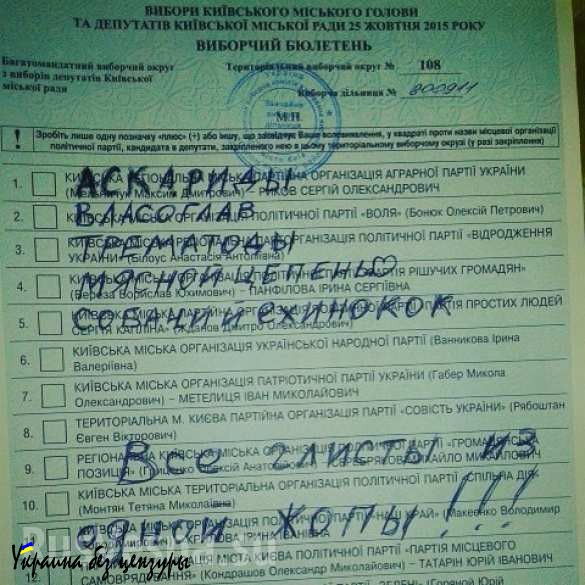 ВИБОРИ КИЇВСЬКОГО МІСЬКОГО ГОЛОВИ
ТА ДЕПУТАТІВ КИЇВСЬКОЇ МІСЬКОЇ РАДИ 25 ЖОВТНЯ 2015 РОКУ
ВИБОРЧИЙ БЮЛЕТЕНЬ
Багатомандатний виборчий округ
з виборів депутатів Київської
міської ради
Територіальний виборчий округ № 108
Виборча дільниця № 800911
М.П.
! Зробіть лише одну позначку «плюс» (+) або іншу, що засвідчує Ваше волевиявлення, у квадраті проти назви місцевої організації
політичної партії, кандидата в депутати, закріпленого нею в цьому територіальному виборчому окрузі (у разі закріплення)
АСКАРИДЫ
ВЛАСОГЛАВ
ТРЕМАТОДЫ
МЯСНОЙ ЦЕПЕНЬ
СОБАЧИЙ ЕХИНОКОК
1. КИЇВСЬКА РЕГІОНАЛЬНА ПАРТІЙНА ОРГАНІЗАЦІЯ АГРАРНОЇ ПАРТІЇ УКРАЇНИ
(Мельничук Максим Дмитрович) – РИКОВ СЕРГІЙ ОЛЕКСАНДРОВИЧ
2. КИЇВСЬКА МІСЬКА ОРГАНІЗАЦІЯ ПОЛІТИЧНОЇ ПАРТІЇ «ВОЛЯ» (Бонюк Олексій Петрович)
3. КИЇВСЬКА МІСЬКА ОРГАНІЗАЦІЯ ПОЛІТИЧНОЇ ПАРТІЇ «ВІДРОДЖЕННЯ
УКРАЇНИ (Білоус Анастасія Антонівна)
4. КИЇВСЬКА МІСЬКА ПОЛІТИЧНОЇ ПАРТІЇ РІШУЧИХ ГРОМАДЯН»
(Береза Борислав Юхимович) – ПАНФІЛОВА ІРИНА СЕРГІЇВНА
5. КИЇВСЬКА ПАРТІЯ ПРОСТИХ ЛЮДЕЙ
СЕРГІЯ КАПЛІНА» (Жданов Дмитро Олександрович)
6. КИЇВСЬКА МІСЬКА ОРГАНІЗАЦІЯ УКРАЇНСЬКОЇ НАРОДНОЇ ПАРТІЇ (Ванникова Ірина
Валеріївна)
7. КИЇВСЬКА МІСЬКА ОРГАНІЗАЦІЯ ПАТРІОТИЧНОЇ ПАРТІЇ УКРАЇНИ (Габер Микола
Олександрович) – МЕТЕЛИЦЯ ІВАН МИКОЛАЙОВИЧ
8. ТЕРИТОРІАЛЬНА М. КИЄВА ПАРТІЙНА ОРГАНІЗАЦІЯ ПАРТІЇ «СОВІСТЬ УКРАЇНИ» (Рябоштан
Євген Вікторович)
Все глисты из
9. РЕГІОНАЛЬНА КИЇВСЬКА МІСЬКА ОРГАНІЗАЦІЯ ПОЛІТИЧНОЇ ПАРТІЇ «ГРОМАДЯНСЬКА
ПОЗИЦІЯ» (Гриценко МИХАЙЛО МИХАЙЛОВИЧ
10. КИЇВСЬКА МІСЬКА ТЕРИТОРІАЛЬНА ОРГАНІЗАЦІЯ ПОЛІТИЧНОЇ ПАРТІЇ «СПІЛЬНА ДІЯ»
(Монтян Тетяна Миколаївна)
одной жопы!!!
ПАРТІЇ «НАШ КРАЙ» (Макеєнко Володимир
МІСТАКИЄВА ПОЛІТИЧНОЇ ПАРТІЇ «ПАРТІЯ МІСЦЕВОГО
САМОВРЯДУВАННЯ» (Кондрашов Олександр Миколайович) – ТАТАРІН ЮРІЙ ІВАНОВИЧ
Украина без цензуры